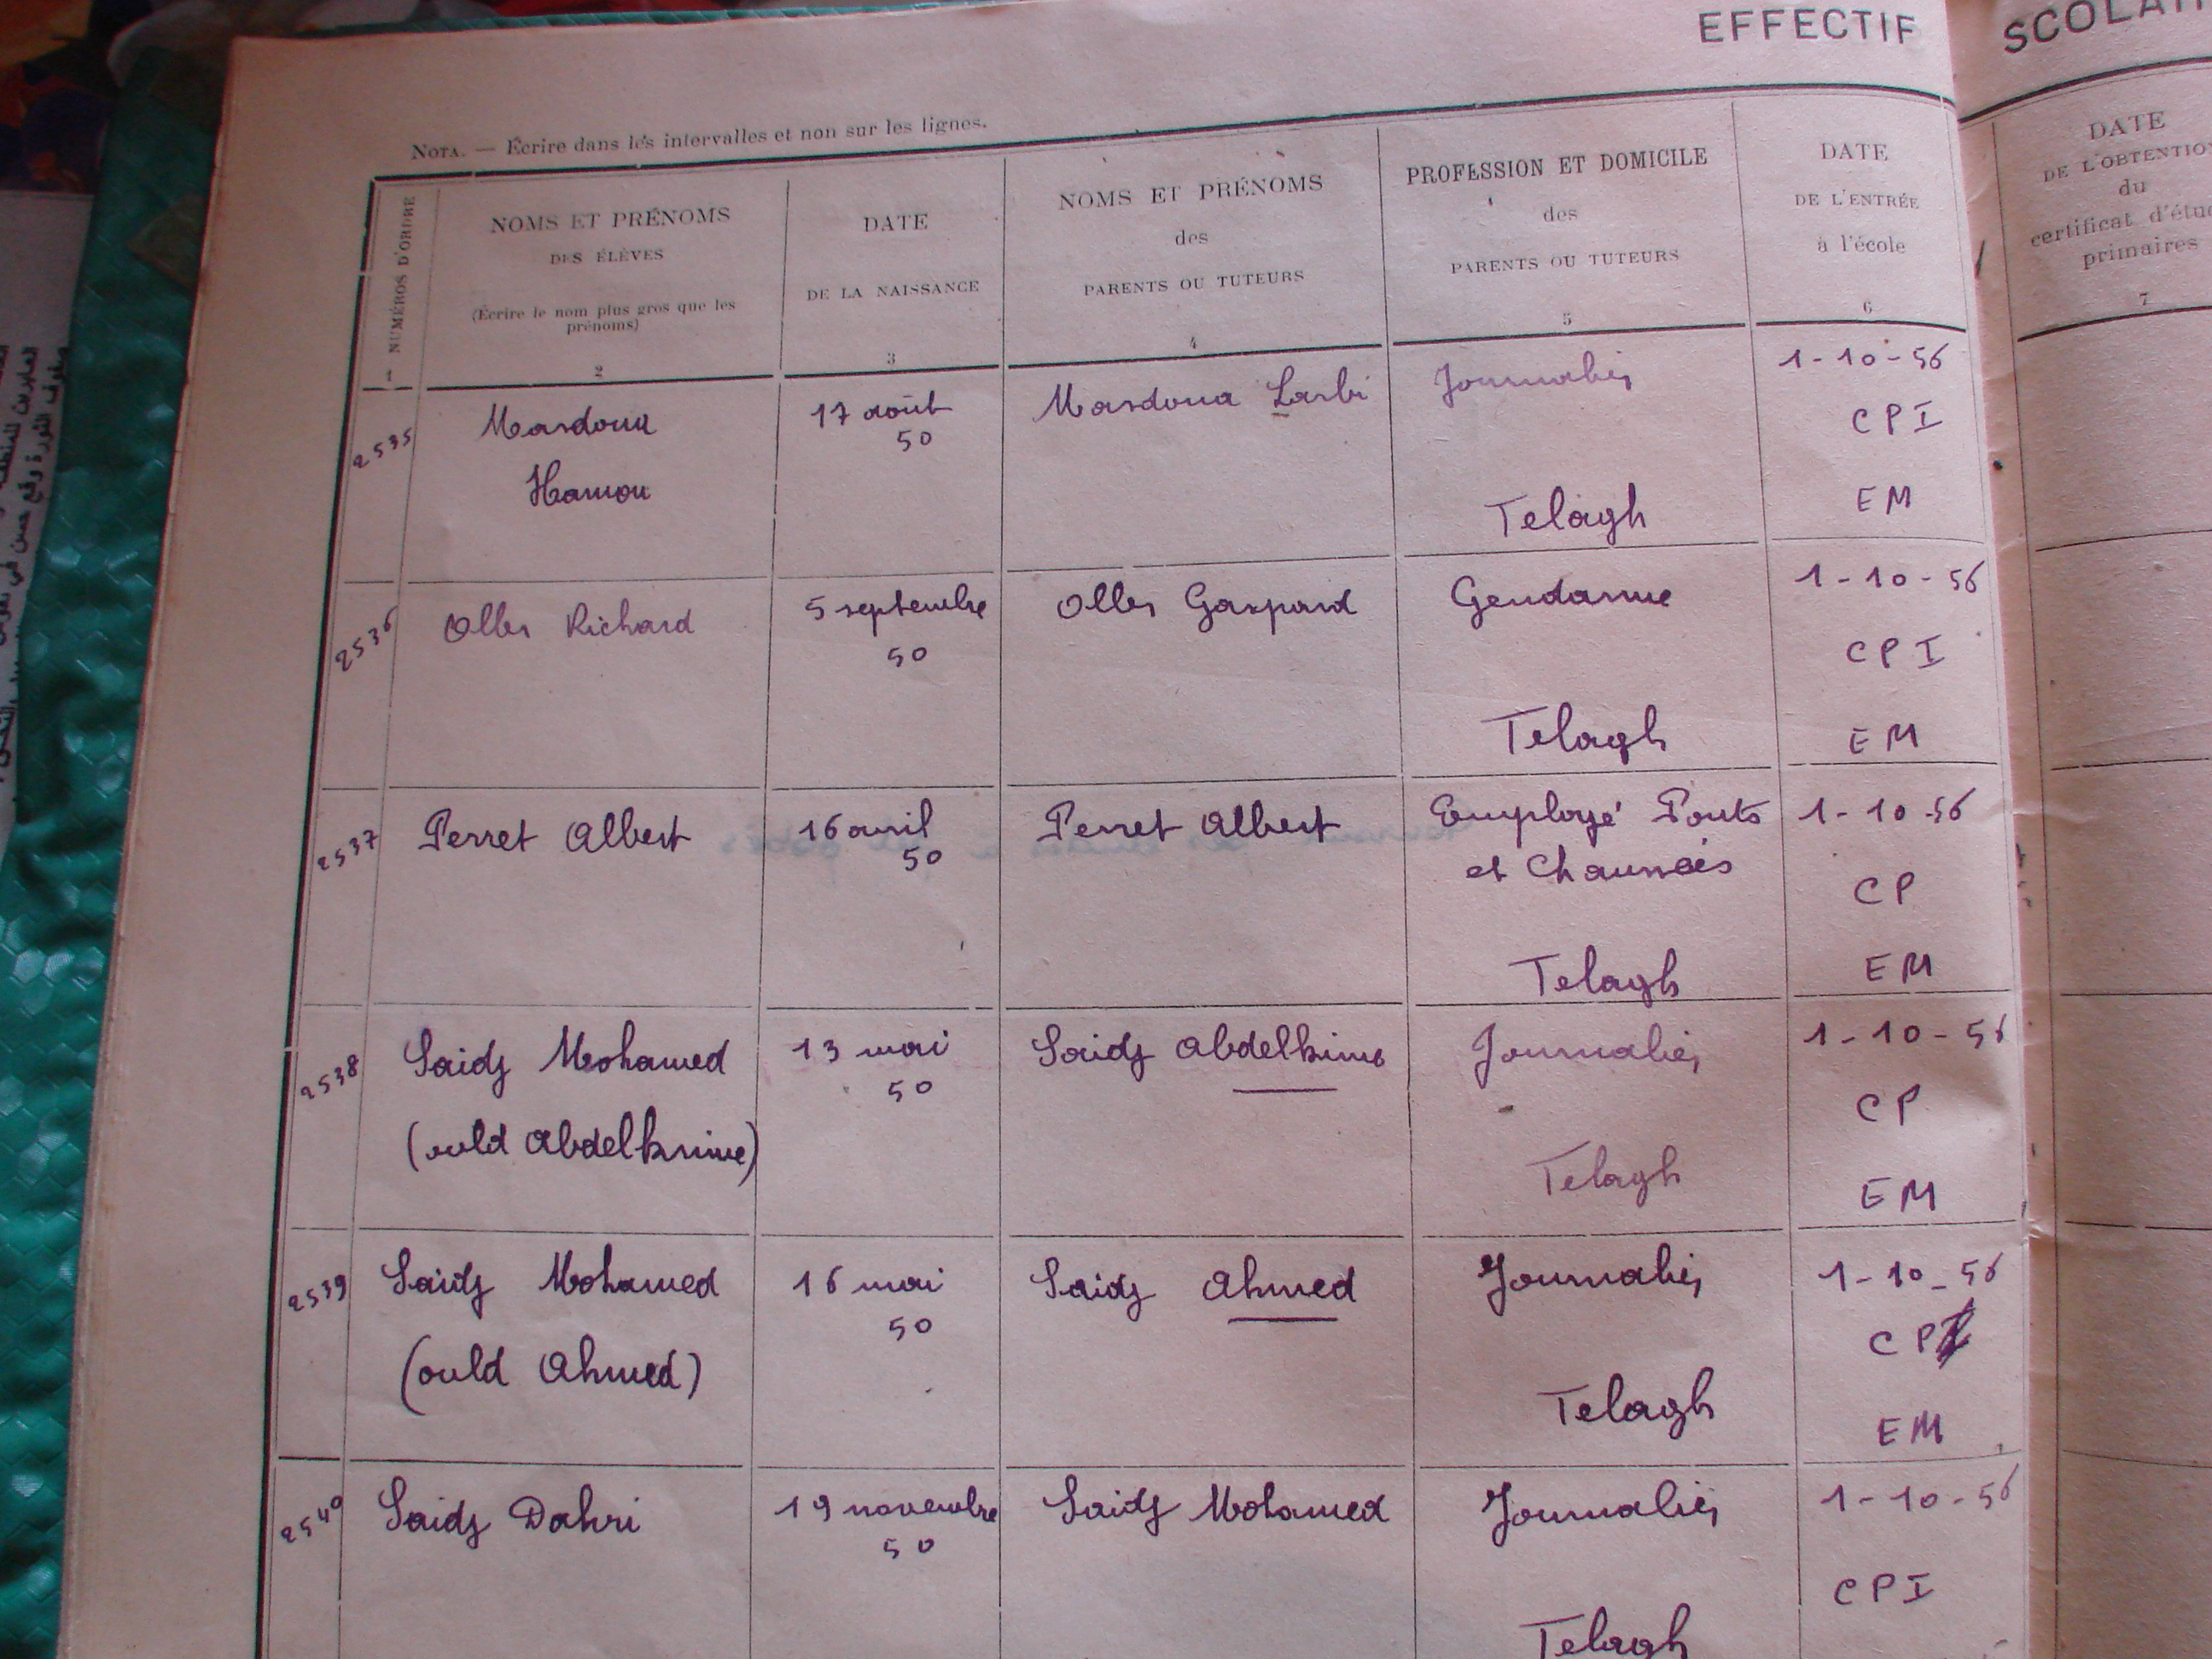 EFFECTIF
NOTA. — Écrire dans les intervalles et non sur les lignes.
NUMÉROS D'ORDRE
1
NOMS ET PRÉNOMS
DES ÉLÈVES
(Écrire le nom plus gros que les
prénoms)
2
DATE
DE LA NAISSANCE
3
NOMS ET PRÉNOMS
des
PARENTS OU TUTEURS
4
PROFESSION ET DOMICILE
des
PARENTS OU TUTEURS
5
DATE
DE L'ENTRÉE
à l'école
6
DATE
du
primaires
7
2535
Masdoua
Hamou
17 août
50
Masdoua Larbi
Journalier
Telagh
1-10-56
CPI
EM
2536
Olles Richard
5 septembre
50
Olles Gaspard
Gendarme
Telagh
1-10-56
CPI
EM
2537
Perret Albert
16 avril
50
Perret Albert
Employé Ponts
et Chaussées
Telagh
1-10-56
CP
EM
2538
Saidj Mohamed
(ould Abdelkrime)
13 mai
50
Saidj Abdelkrime
Journalier
Telagh
1-10-56
CP
EM
2539
Saidj Mohamed
(ould Ahmed)
16 mai
50
Saidj Ahmed
Journalier
Telagh
1-10-56
CP
EM
2540
Saidj Dahri
19 novembre
50
Saidj Mohamed
Journalier
Telagh
1-10-56
CPI